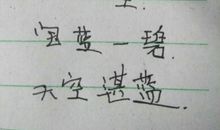 蓝一碧.
天空湛蓝.